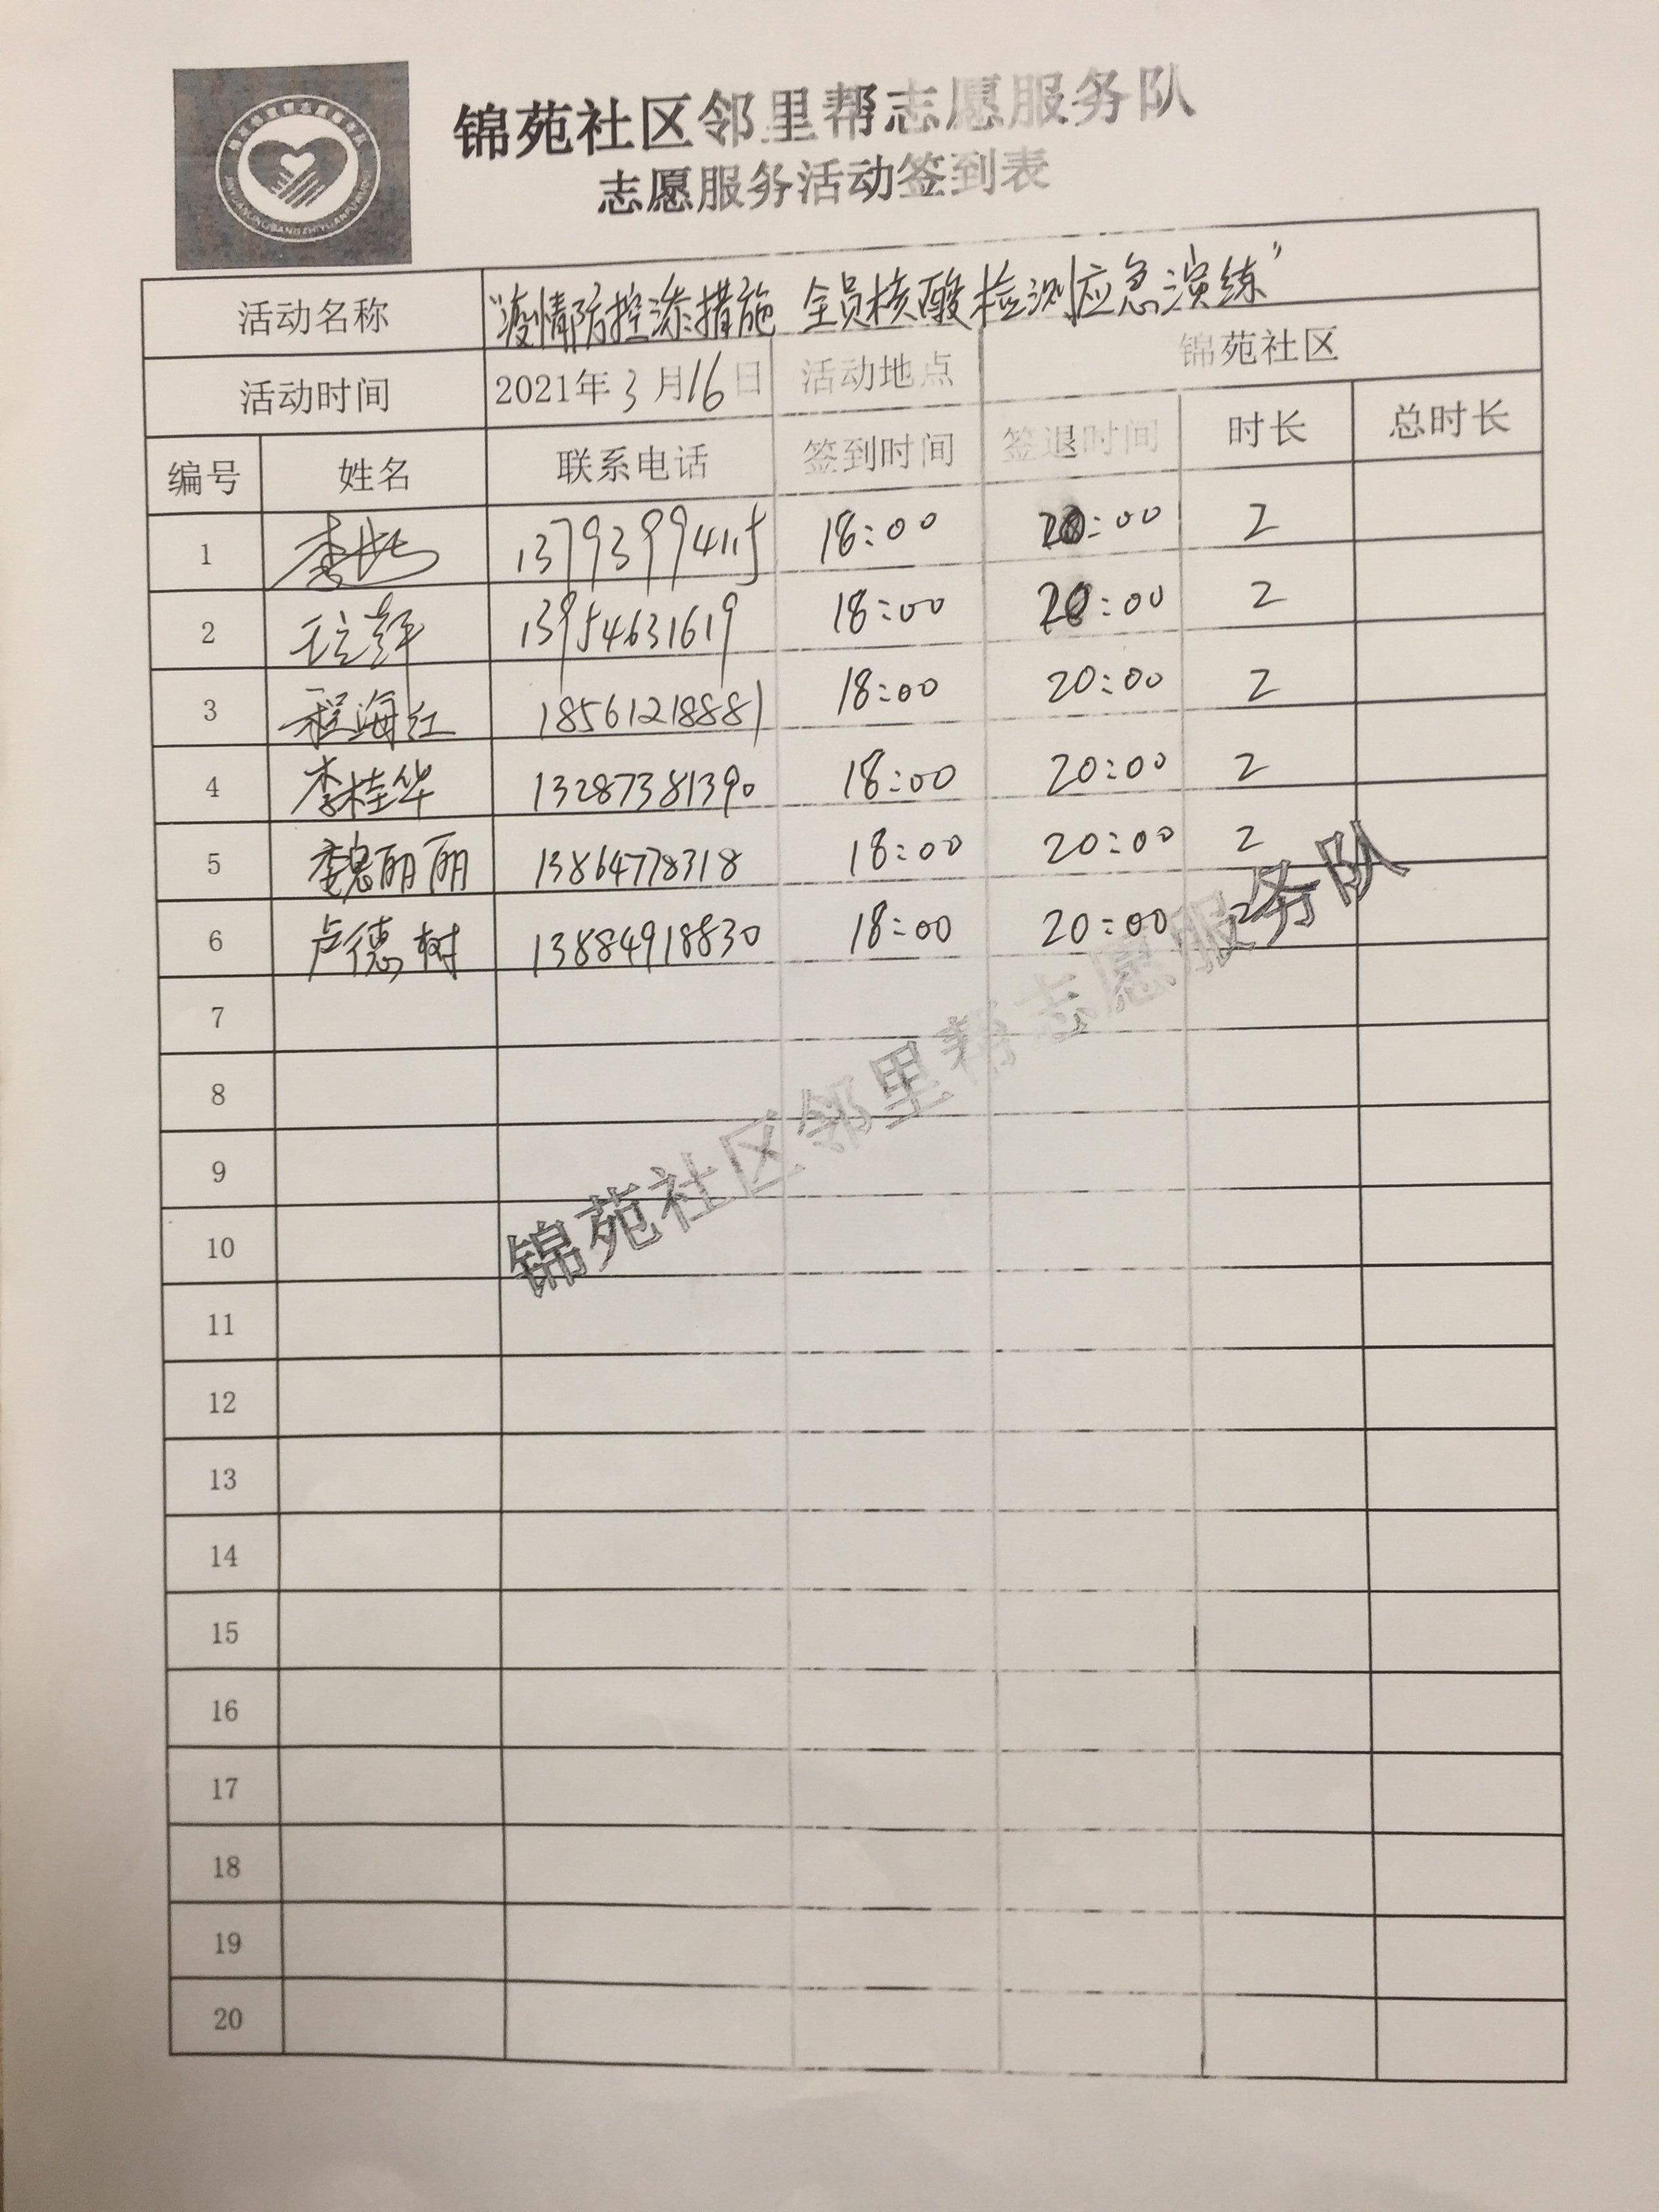 锦苑社区邻里帮志愿服务队
志愿服务活动签到表
活动名称 "疫情防控添措施 全员核酸检测应急演练"
活动时间 2021年3月16日 活动地点 锦苑社区
编号 姓名 联系电话 签到时间 签退时间 时长 总时长
1 李 18:00 20:00 2
2 13954631619 18:00 20:00 2
3 程海红 18561218881 18:00 20:00 2
4 李桂华 13287381390 18:00 20:00 2
5 魏丽丽 13864778318 18:00 20:00 2
6 卢德树 13884918830 18:00 20:00 2
锦苑社区邻里帮志愿服务队
7
8
9
10
11
12
13
14
15
16
17
18
19
20